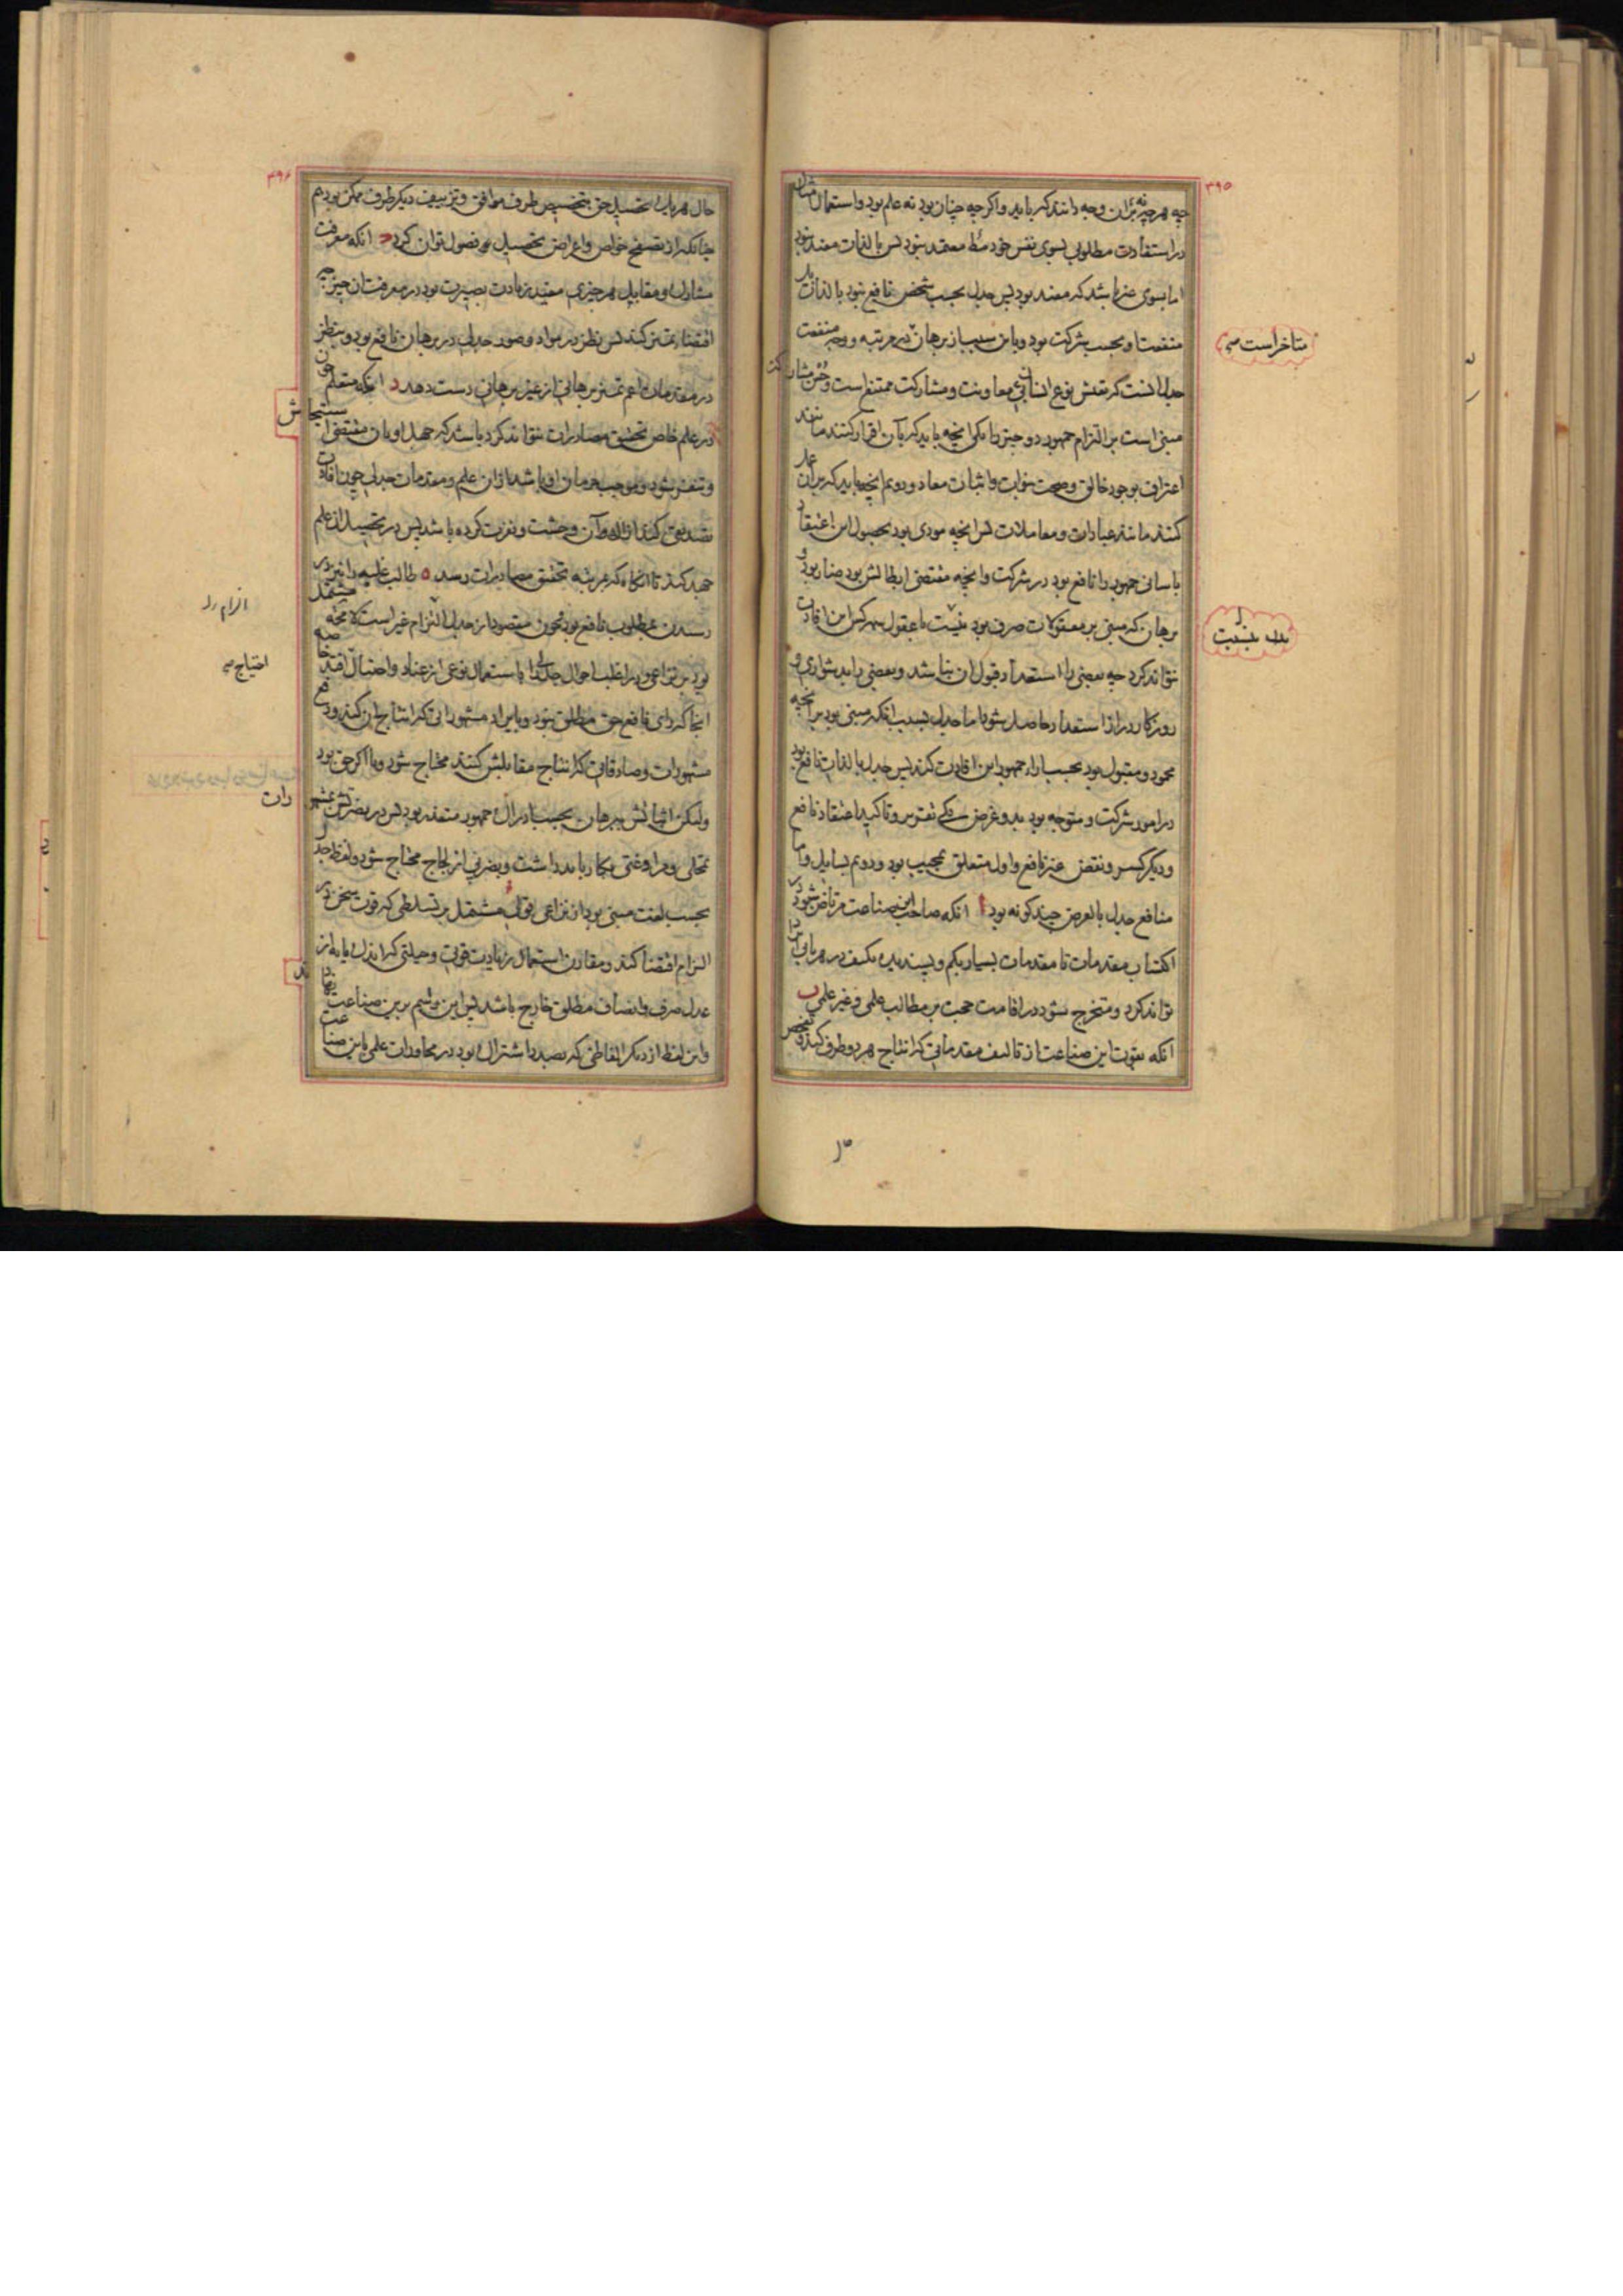 ۳۹۵
چه هرچه نه بران وجه دانند که باید و اگر چه چنان بود نه علم بود و استعمال مشارک
در استفادت مطلوبی بسوی نفس خود مط معتمد نبود پس بالذات مفید نبود
اما بسوی غیر باشد که مفید بود پس جدل بحسب شخص نافع نبود بالذات بل
منفعت او بحسب شرکت بود و باین سبب از برهان در مرتبه و وجه منفعت
متاخر است
جدل انست که تعیش نوع انسانی بی معاونت و مشارکت ممتنع است و حسن مشارکت
مبنی است بر التزام جمهور دو چیز را یکی انچه باید که بآن اقرار کنند مانند
اعتراف بوجود خالق و صحت نبوات و اثبات معاد و دوم انچه باید که بران عمل
کنند مانند عبادات و معاملات پس انچه مودی بود بحصول این اعتقاد
باسانی جمهور را نافع بود در شرکت و انچه مقتضی ابطالش بود ضار بود و
برهان که مبنی بر معقولات صرف بود نسبت با عقول همه کس این افادت
بلکه بنسبت
نتواند کرد چه بعضی را استعداد قبول ان نباشد و بعضی را بدشواری و
روزگار دراز استعداد حاصل شود اما جدل بسبب انکه مبنی بود بر انچه
محمود و مقبول بود بحسب اراء جمهور این افادت کند پس جدل بالذات نافع بود
در امور شرکت و متوجه بود بدو غرض یکی تقریر و تاکید اعتقاد نافع
و دیگر کسر و نقض غیر نافع و اول متعلق بمجیب بود و دوم بسایل و اما
منافع جدل بالعرض چند گونه بود ا انکه صاحب این صناعت مرتاض شود در
اکتساب مقدمات تا مقدمات بسیار بکم و بسنده بکیف در هر بابی ایراد
تواند کرد و متخرج شود در اقامت حجت بر مطالب علمی و غیر علمی ب
انکه بقوت این صناعت از تالیف مقدماتی که انتاج هر دو طرف کند و تفحص
۳۹۶
حال هر یک تحصیل حق بتخصیص طرف موافق و تزییف دیگر طرف ممکن بود هم
چنانکه از تصفح خواص و اعراض تحصیل فصول توان کرد ج انکه معرفت
مشارک و مقابل هر چیزی مفید زیادت بصیرت بود در معرفت ان چیز چه
اقتضاء تمیز کند پس نظر در مواد و صور جدلی در برهان نافع بود و بنظر
در مقدمات اعم تمیز برهانی از غیر برهانی دست دهد د انکه متعلم چون
در علم خاص تحقیق مصادرات نتواند کرد باشد که جهل او بان مقتضی استیحاش
و تنفر شود و موجب حرمان او باشد ازان علم و مقدمات جدلی چون افادت
تصدیق کند ازاله آن وحشت و نفرت کرده باشد پس در تحصیل ان علم
جهد کند تا انگاه که بمرتبه تحقیق مصادرات رسد ه طالب غلبه را نیز در
رسیدن بمطلوب نافع بود و چون مقصود از جدل التزام غیر است لا محاله مشتمل
الزام را
بود بر نزاعی و در اغلب احوال جدلی را باستعمال نوعی از عناد و احتیال خاصه
احتیاج
انجا که رای نافع حق مطلق نبود و بایراد مشهوراتی که انتاج ان کند و دفع
مشهورات و صادقاتی که انتاج مقابلش کنند محتاج شود و یا اگر حق بود
ولیکن اثباتش ببرهان بحسب ادراک جمهور متعذر بود پس در نصرتش بمشهورات
تمحلی و مراوغتی بکار باید داشت و بضربی از لجاج محتاج شود و لفظ جدل
بحسب لغت مبنی بود از نزاعی قولی مشتمل بر تسلطی که قوت سخن در
الزام اقتضا کند و مقارن استعمال زیادت قوتی و حیلتی که اندک مایه از
عدل صرف و انصاف مطلق خارج باشد پس این اسم برین صناعت نهادند
و این لفظ از دیگر الفاظی که بصدد اشتراک بود در محاورات علمی باین صناعت